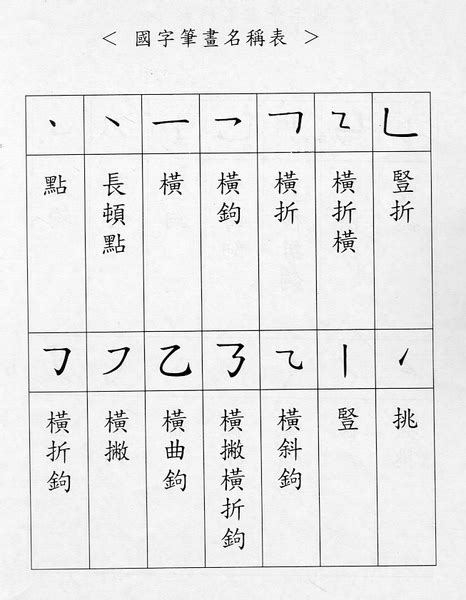 < 國字筆畫名稱表 >
丶 ㇔ 一 ㇖ ㇕ ㇅ ㇗
點
長頓點
橫
橫鉤
橫折
橫折橫
豎折
㇆ ㇇ 乙 ㇌ ㇈ 丨 ㇀
橫折鉤
橫撇
橫曲鉤
橫撇橫折鉤
橫斜鉤
豎
挑